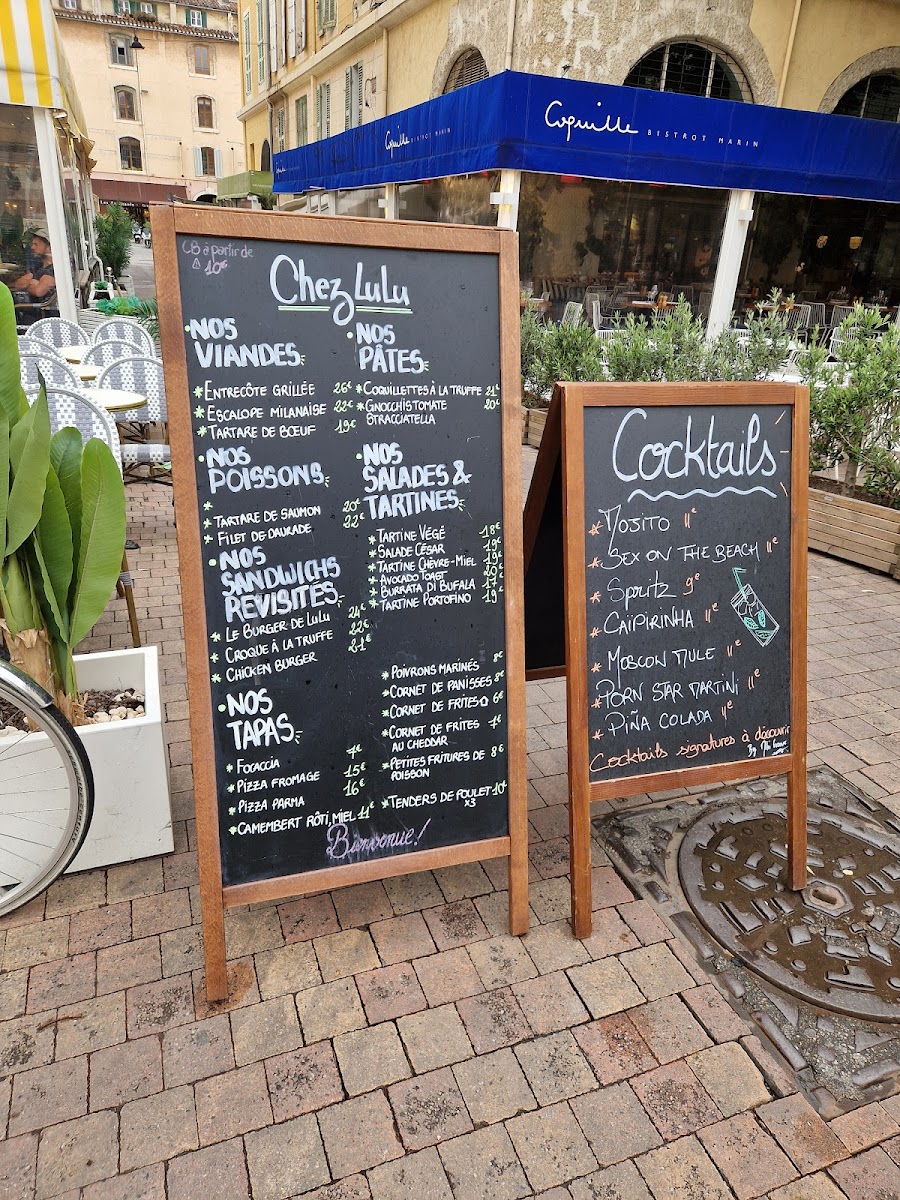 Coquille BISTROT MARIN
Coquille BISTROT MARIN
CB à partir de
10€
Chez LuLu
NOS
VIANDES
* ENTRECÔTE GRILLÉE 26€
* ESCALOPE MILANAISE 22€
* TARTARE DE BŒUF 19€
NOS
POISSONS
* TARTARE DE SAUMON 20€
* FILET DE DAURADE 22€
NOS
SANDWICHS
REVISITES
* LE BURGER DE LULU 24€
* CROQUE À LA TRUFFE 22€
* CHICKEN BURGER 21€
NOS
TAPAS
* FOCACCIA
* PIZZA FROMAGE 15€
* PIZZA PARMA 16€
* CAMEMBERT RÔTI, MIEL 11€
NOS
PÂTES
* COQUILLETTES À LA TRUFFE 21€
* GNOCCHIS TOMATE 20€
STRACCIATELLA
NOS
SALADES &
TARTINES
* TARTINE VÉGÉ 18€
* SALADE CÉSAR 19€
* TARTINE CHÈVRE-MIEL 19€
* AVOCADO TOAST
* BURRATA DI BUFALA
* TARTINE PORTOFINO 19€
* POIVRONS MARINÉS 8€
* CORNET DE PANISSES 8€
* CORNET DE FRITES 6€
* CORNET DE FRITES
AU CHEDDAR
* PETITES FRITURES DE 8€
POISSON
* TENDERS DE POULET 10€
X3
Bienvenue!
Cocktails
* MOJITO 11e
* SEX ON THE BEACH 11e
* Spritz 9e
* CAIPIRINHA 11e
* MOSCOW MULE 11e
* PORN STAR MARTINI 11e
* PIÑA COLADA 11e
Cocktails signatures à découvrir